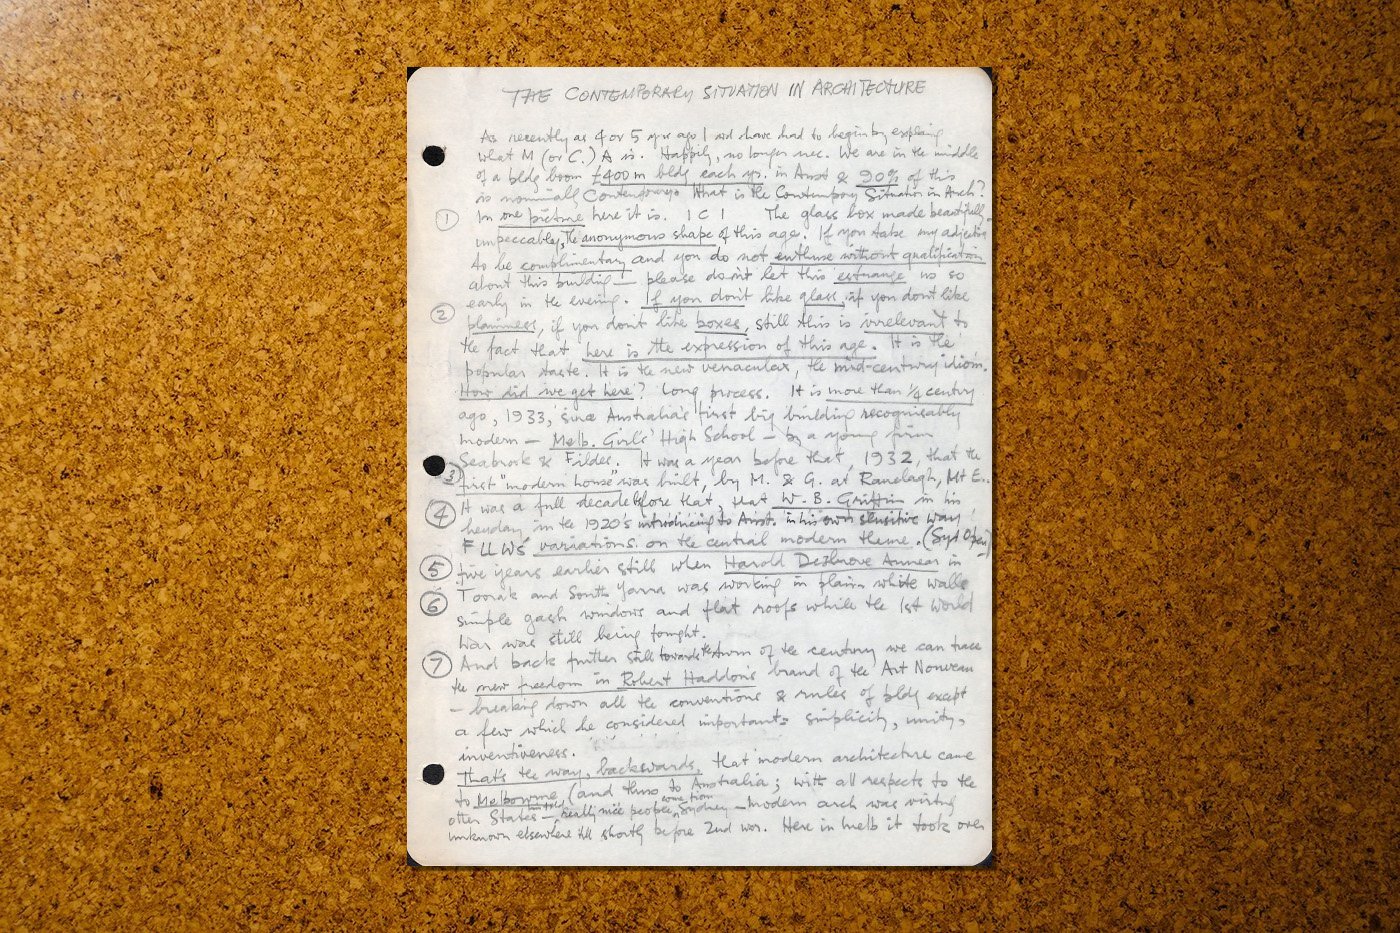 THE CONTEMPORARY SITUATION IN ARCHITECTURE
As recently as 4 or 5 yrs ago I wd have had to begin by explaing
what M (or C.) A is. Happily, no longer nec. We are in the middle
of a bldg boom £400 m bldg each yr. in Aust & 90% of this
is nominally Contemporary. What is the Contempory Situation in Arch?
① In one picture here it is. I C I The glass box made beautifully,
impeccably, the anonymous shape of this age. If you take my adjectives
to be complimentary and you do not enthuse without qualification
about this building — please don't let this estrange us so
early in the evening. If you don't like glass, if you don't like
② plainness, if you don't like boxes, still this is irrelevant to
the fact that here is the expression of this age. It is the
popular taste. It is the new vernacular, the mid-century idiom.
How did we get here? Long process. It is more than 1/4 century
ago, 1933, since Australia's first big building recognisably
modern — Melb. Girls' High School — by a young firm
Seabrook & Fildes. It was a year before that, 1932, that the
③ first "modern house" was built, by M. & G. at Ranelagh, Mt E..
④ It was a full decade before that, that W. B. Griffin in his
heyday in the 1920s introducing to Aust. in his own sensitive way
FLLWs' variations on the central modern theme. (Syd Open)
⑤ five years earlier still when Harold Desbrove Annear in
⑥ Toorak and South Yarra was working in plain white walls
simple gash windows and flat roofs while the 1st World
War was still being fought.
⑦ And back further still towards the turn of the century we can trace
the new freedom in Robert Haddon's brand of the Art Nouveau
— breaking down all the conventions & rules of bldg except
a few which he considered important: simplicity, unity,
inventiveness.
That's the way, backwards, that modern architecture came
to Melbourne (and thus to Australia; with all respects to the
other States — really nice people come from Sydney — modern arch was virtually
unknown elsewhere till shortly before 2nd war. Here in Melb it took over